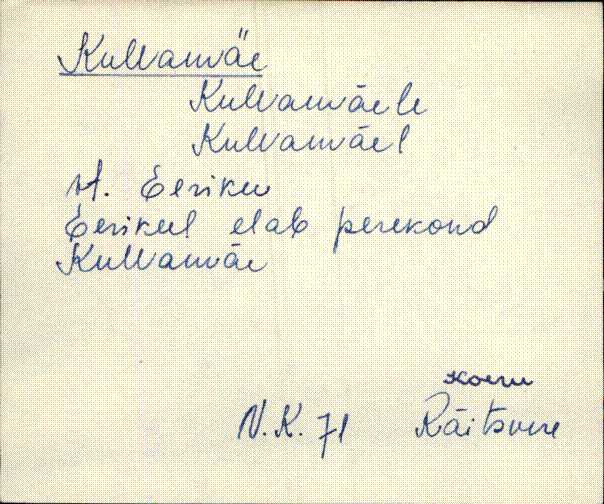 Kullamäe
Kullamäele
Kullamäel
M. Eeriku
Eerikul elab perekond
Kullamäe
Koeru
N.K. 71 Räitsvere